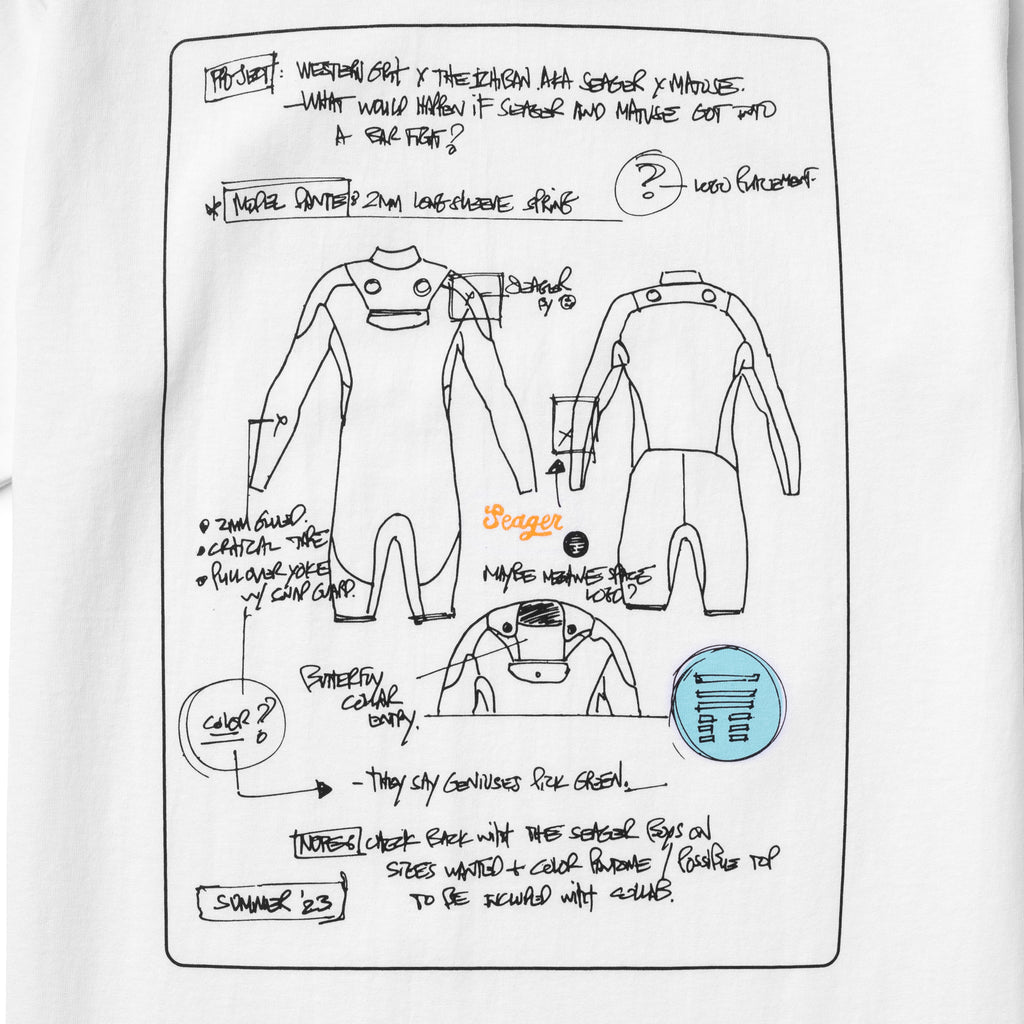 PROJECT: WESTERN GRIT X THE ICHIBAN AKA SEAGER X MATUSE.
- WHAT WOULD HAPPEN IF SEAGER AND MATUSE GOT INTO
A BAR FIGHT?
?
LOGO PLACEMENT.
* MODEL DANTE: 2MM LONGSLEEVE SPRING
SEAGER
BY
X
X
X
• 2MM GLUED.
• CRITICAL TAPE
• PULLOVER YOKE
W/ SOUP GUARD.
Seager
MAYBE SPACE
LOGO?
BUTTERFLY
COLLAR
ENTRY.
COLOR?
- THEY SAY GENIUSES PICK GREEN.
NOTES: CHECK BACK WITH THE SEAGER BOYS ON
SIZES WANTED + COLOR PANTONE / POSSIBLE TOP
TO BE INCLUDED WITH COLLAB.
SUMMER '23